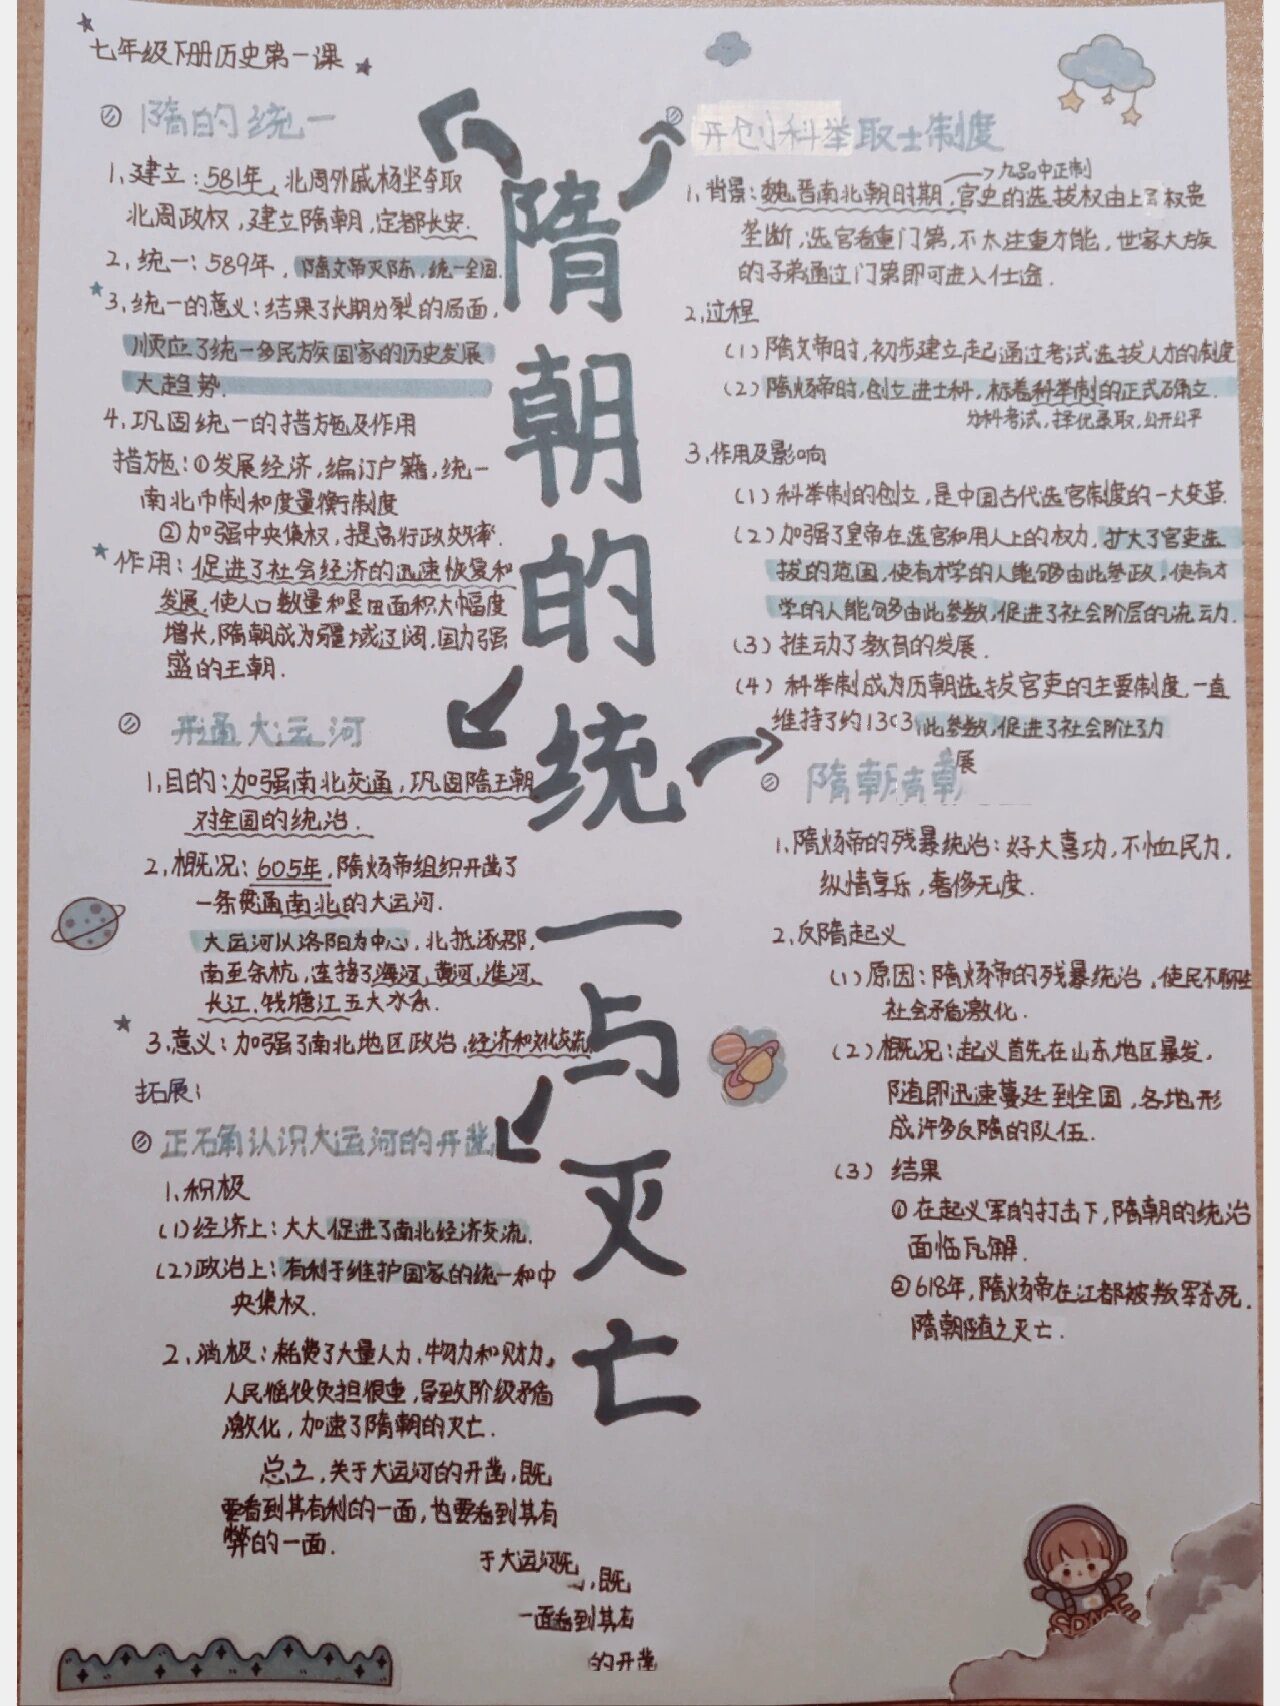 七年级下册历史第一课
隋朝的统一与灭亡
隋的统一
1、建立：581年，北周外戚杨坚夺取
北周政权，建立隋朝，定都长安.
2、统一：589年，隋文帝灭陈，统一全国.
3、统一的意义：结果了长期分裂的局面，
顺应了统一多民族国家的历史发展
大趋势.
4、巩固统一的措施及作用
措施：①发展经济，编订户籍，统一
南北币制和度量衡制度
②加强中央集权，提高行政效率.
作用：促进了社会经济的迅速恢复和
发展，使人口数量和垦田面积大幅度
增长，隋朝成为疆域辽阔，国力强
盛的王朝.
开通大运河
1、目的：加强南北交通，巩固隋王朝
对全国的统治.
2、概况：605年，隋炀帝组织开凿了
一条贯通南北的大运河.
大运河以洛阳为中心，北抵涿郡，
南至余杭，连接了海河、黄河、淮河、
长江、钱塘江五大水系.
3、意义：加强了南北地区政治、经济和文化交流.
拓展：
正确认识大运河的开凿
1、积极
(1)经济上：大大促进了南北经济交流.
(2)政治上：有利于维护国家的统一和中
央集权.
2、消极：耗费了大量人力、物力和财力，
人民徭役负担很重，导致阶级矛盾
激化，加速了隋朝的灭亡.
总之，关于大运河的开凿，既
要看到其有利的一面，也要看到其有
弊的一面.
于大运河
，既
一面看到其有
的开凿
开创科举取士制度
九品中正制
1、背景：魏晋南北朝时期，官吏的选拔权由上 权贵
垄断，选官看重门第，不太注重才能，世家大族
的子弟通过门第即可进入仕途.
2、过程
(1)隋文帝时，初步建立起通过考试选拔人才的制度
(2)隋炀帝时，创立进士科，标着科举制的正式确立.
分科考试，择优录取，公开公平
3、作用及影响
(1)科举制的创立，是中国古代选官制度的一大变革.
(2)加强了皇帝在选官和用人上的权力，扩大了官吏选
拔的范围，使有才学的人能够由此参政，使有才
学的人能够由此参数，促进了社会阶层的流动.
(3)推动了教育的发展.
(4)科举制成为历朝选拔官吏的主要制度，一直
维持了约13 此参数，促进了社会阶 力
展
隋朝
1、隋炀帝的残暴统治：好大喜功，不恤民力，
纵情享乐，奢侈无度.
2、反隋起义
(1)原因：隋炀帝的残暴统治，使民不聊生
社会矛盾激化.
(2)概况：起义首先在山东地区暴发，
随即迅速蔓延到全国，各地形
成许多反隋的队伍.
(3)结果
①在起义军的打击下，隋朝的统治
面临瓦解.
②618年，隋炀帝在江都被叛军杀死.
隋朝随之灭亡.